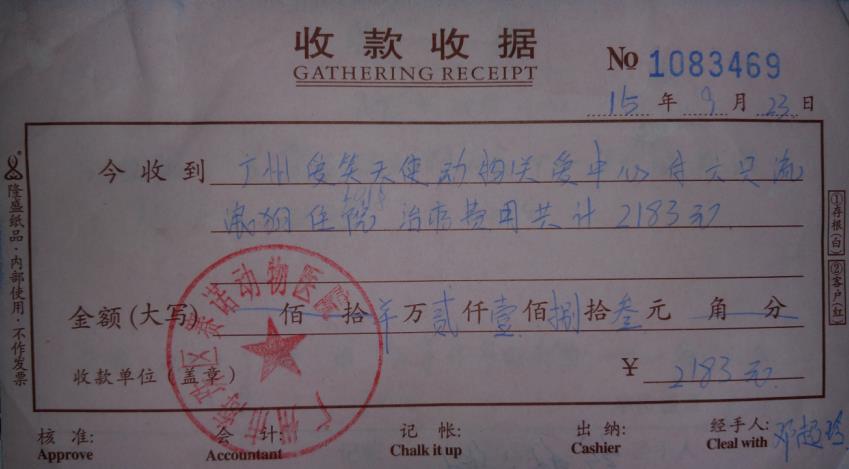 收款收据
GATHERING RECEIPT
№ 1083469
15 年 9 月 23 日
今收到 广州爱笑天使动物关爱中心付六只流
浪狗住院治病费用共计2183元
金额(大写) 佰 拾 万 贰 仟 壹 佰 捌 拾 叁 元 角 分
收款单位(盖章) ¥ 2183元
核准: 会计: 记帐: 出纳: 经手人:
Approve Accountant Chalk it up Cashier Cleal with
隆盛纸品·内部使用·不作发票
①存根(白)
②客户(红)
广州市海珠区 诺动物医院